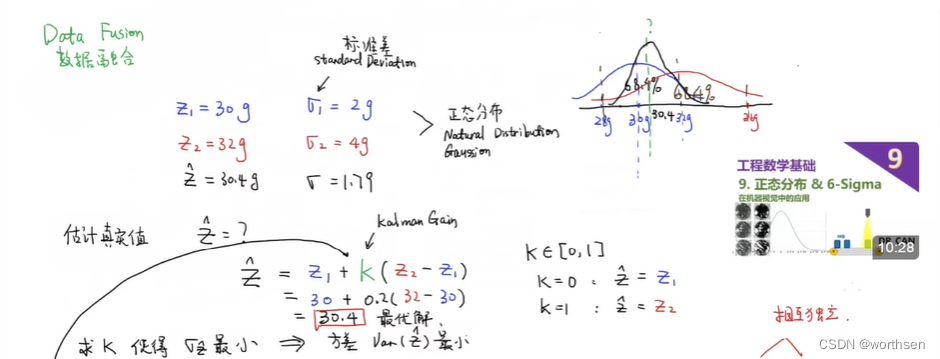 Data Fusion
数据融合
标准差
standard Deviation
z₁ = 30g σ₁ = 2g
z₂ = 32g σ₂ = 4g
ẑ = 30.4g σ = 1.79
正态分布
Natural Distribution
Gaussian
?
68.4% 68.4%
28g 30g 30.4 32g 36g
工程数学基础
9
9. 正态分布 & 6-Sigma
在机器视觉中的应用
DR_CAN
10:28
估计真实值 ẑ = ?
Kalman Gain
ẑ = z₁ + k(z₂ - z₁)
= 30 + 0.2(32 - 30)
= 30.4 最优解.
k∈[0,1]
k=0 : ẑ = z₁
k=1 : ẑ = z₂
求 K 使得 σẑ 最小 ⇒ 方差 Var(ẑ) 最小
相互独立.
CSDN @worthsen